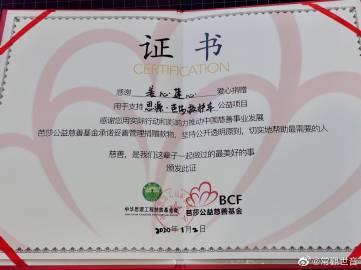 证书
CERTIFICATION
感谢 爱心捐赠
用于支持 思源·芭莎救护车 公益项目
感谢您用实际行动和影响力推动中国慈善事业发展
芭莎公益慈善基金承诺妥善管理捐赠款物，坚持公开透明原则，切实地帮助最需要的人
慈善，是我们这辈子一起做过的最美好的事
颁发此证
BCF
中华思源工程扶贫基金会 芭莎公益慈善基金
2020年1月2日